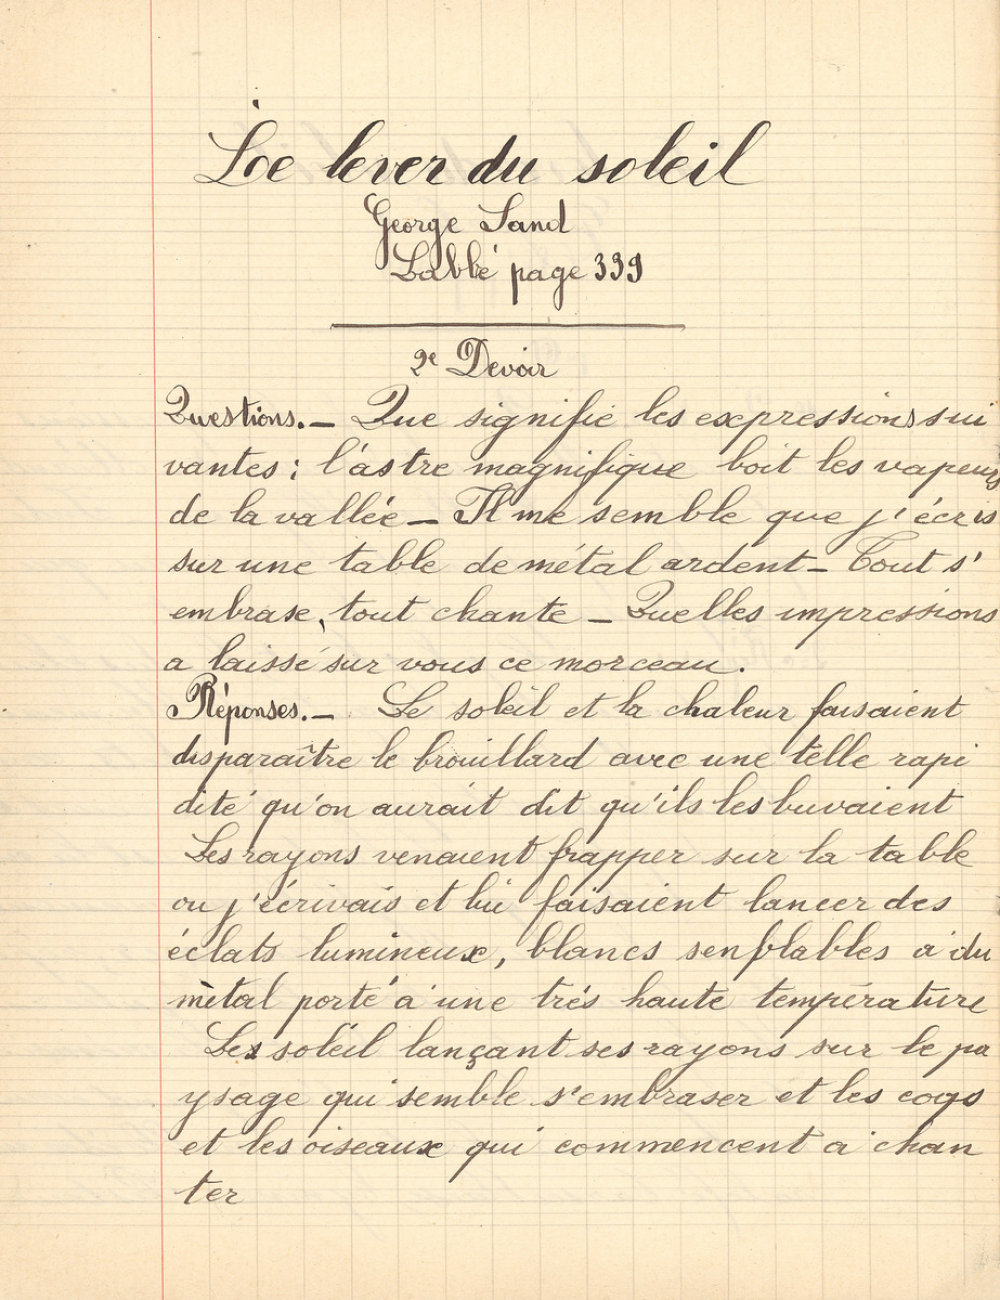 Le lever du soleil
George Sand
Labbé page 339
2e Devoir
Questions.— Que signifie les expressions sui
vantes : l'astre magnifique boit les vapeurs
de la vallée — Il me semble que j'écris
sur une table de métal ardent — Tout s'
embrase, tout chante — Quelles impressions
a laissé sur vous ce morceau.
Réponses.— Le soleil et la chaleur faisaient
disparaître le brouillard avec une telle rapi
dité qu'on aurait dit qu'ils les buvaient
Les rayons venaient frapper sur la table
ou j'écrivais et lui faisaient lancer des
éclats lumineux, blancs senblables à du
mètal porté à une trés haute température
Les soleil lançant ses rayons sur le pa
ysage qui semble s'embraser et les coqs
et les oiseaux qui commencent à chan
ter